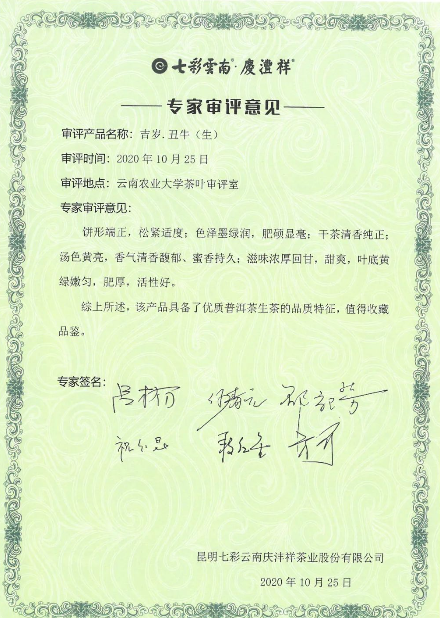 七彩雲南®·慶灃祥®
专家审评意见
审评产品名称：吉岁.丑牛（生）
审评时间：2020年10月25日
审评地点：云南农业大学茶叶审评室
专家审评意见：
饼形端正，松紧适度；色泽墨绿润，肥硕显毫；干茶清香纯正；
汤色黄亮，香气清香馥郁、蜜香持久；滋味浓厚回甘，甜爽，叶底黄
绿嫩匀，肥厚，活性好。
综上所述，该产品具备了优质普洱茶生茶的品质特征，值得收藏
品鉴。
专家签名：
昆明七彩云南庆沣祥茶业股份有限公司
2020年10月25日